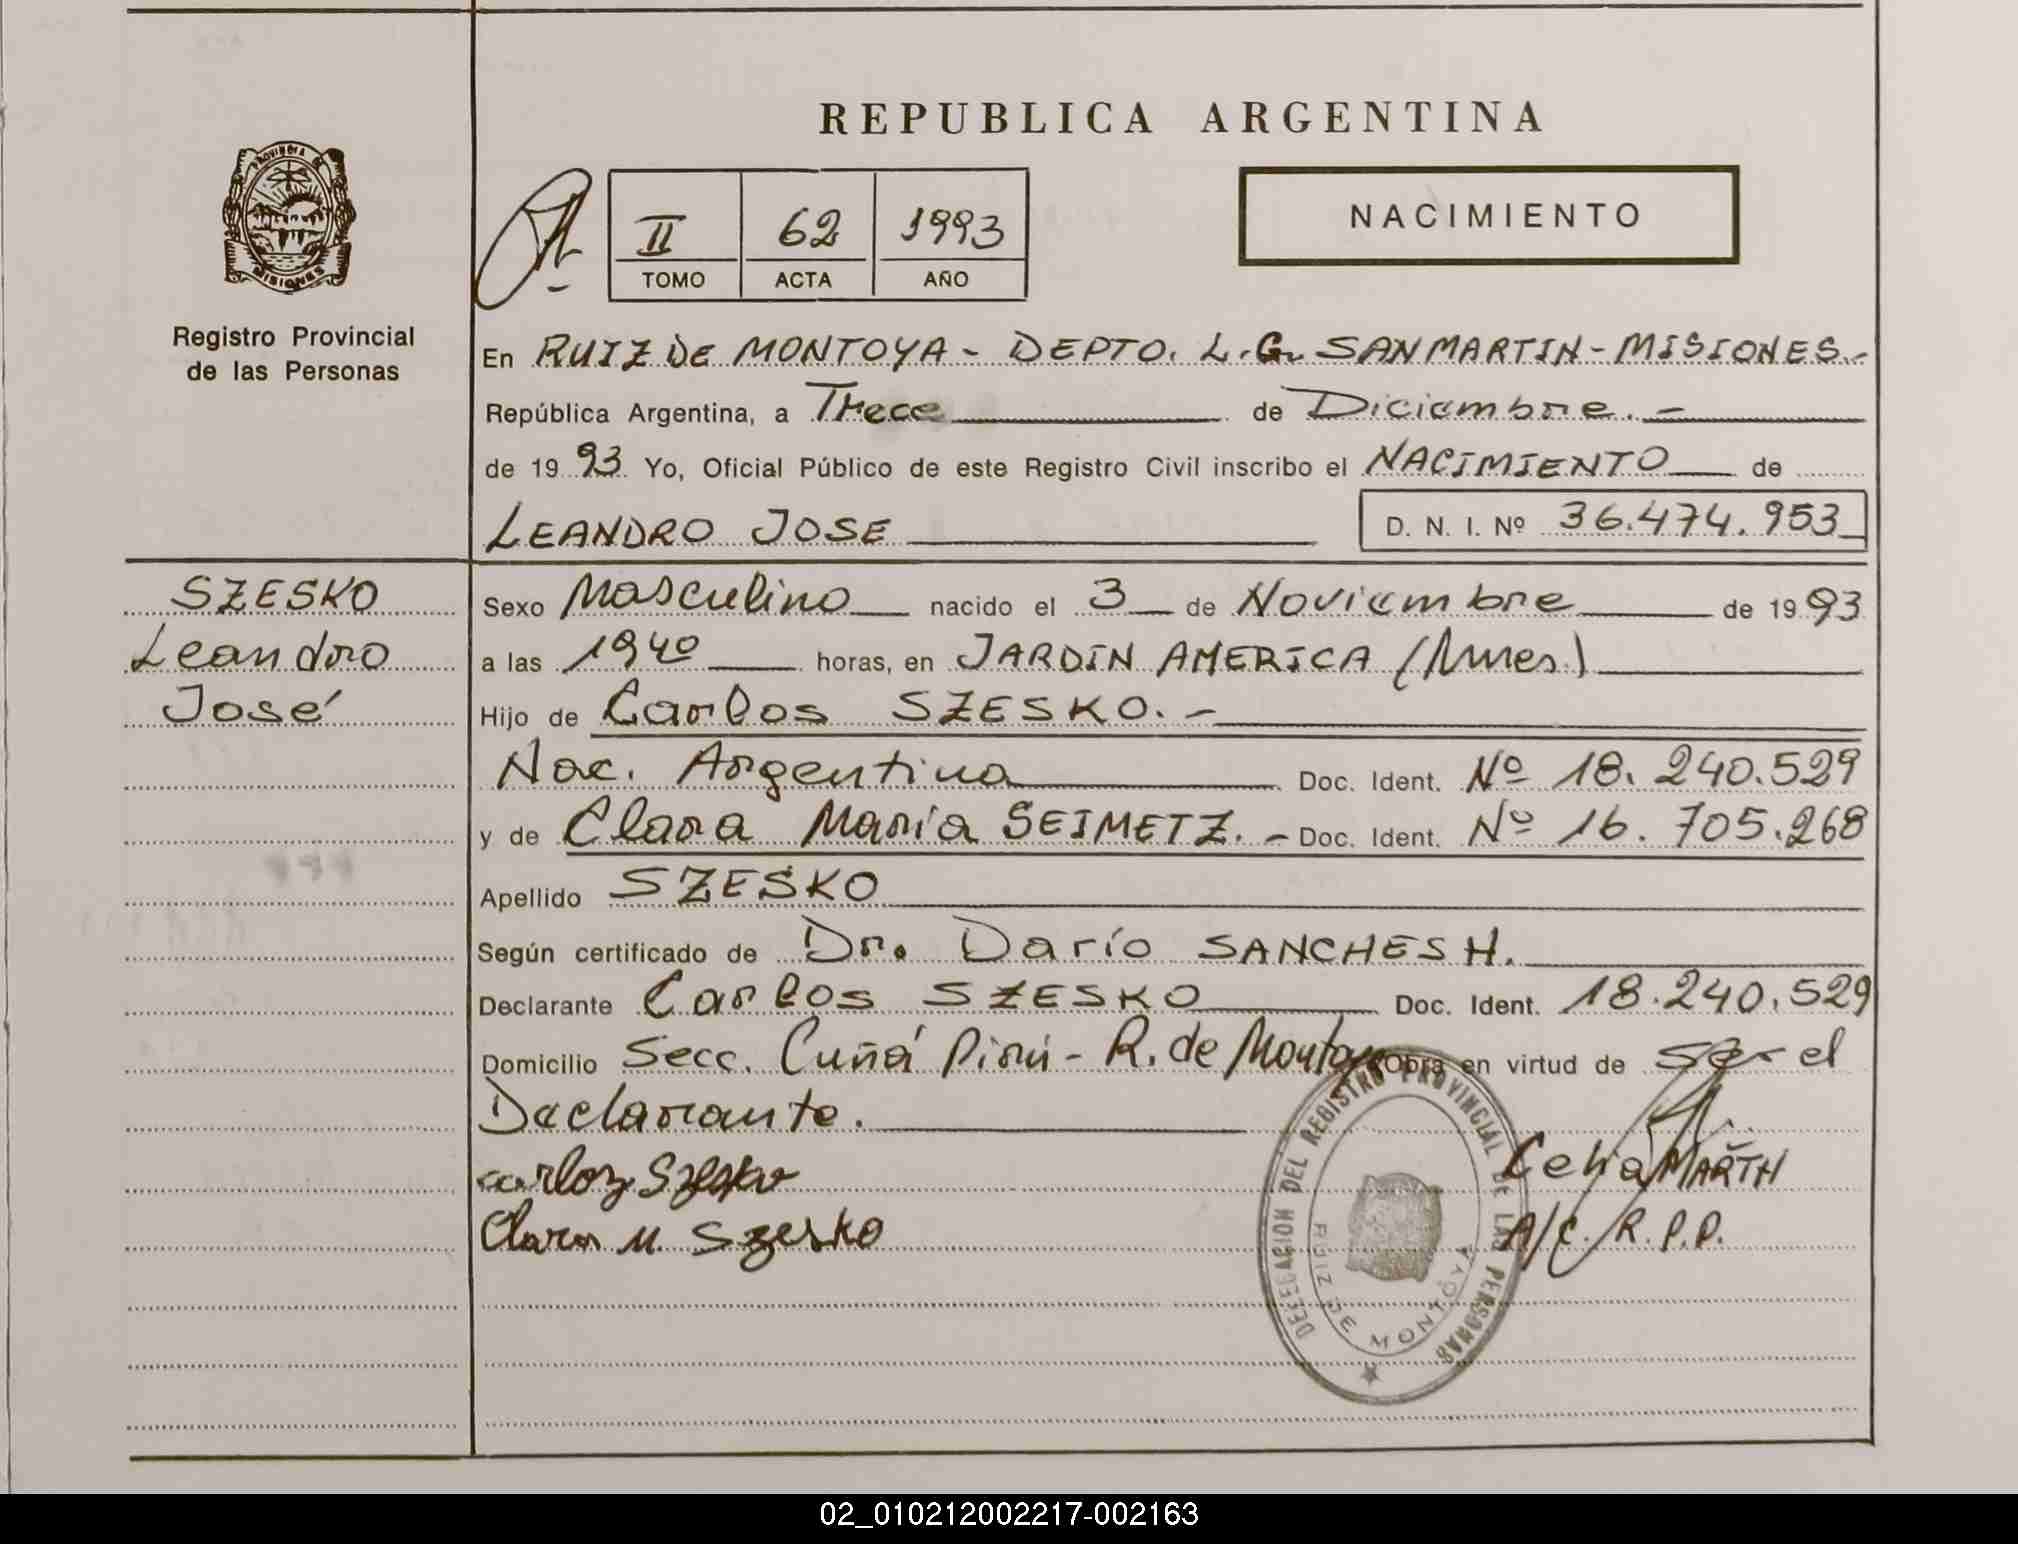 REPUBLICA ARGENTINA
PROVINCIA DE
MISIONES
Registro Provincial
de las Personas
II 62 1993
TOMO ACTA AÑO
NACIMIENTO
En RUIZ DE MONTOYA - DEPTO. L.G. SAN MARTIN - MISIONES.-
República Argentina, a Trece de Diciembre.-
de 1993 Yo, Oficial Público de este Registro Civil inscribo el NACIMIENTO de
LEANDRO JOSE D. N. I. Nº 36.474.953
SZESKO
Leandro
José
Sexo Masculino nacido el 3 de Noviembre de 1993
a las 1940 horas, en JARDIN AMERICA (Mnes.)
Hijo de Carlos SZESKO.-
Nac. Argentina Doc. Ident. Nº 18.240.529
y de Clara María SEIMETZ.- Doc. Ident. Nº 16.705.268
Apellido SZESKO
Según certificado de Dr. Darío SANCHES H.
Declarante Carlos SZESKO Doc. Ident. 18.240.529
Domicilio Secc. Cuñá Pirú - R. de Montoya Obra en virtud de ser el
Declarante.
carloz Szesko
Clara M. Szesko
Celia MARTH
A/C. R.P.P.
DELEGACION DEL REGISTRO PROVINCIAL DE LAS PERSONAS
RUIZ DE MONTOYA
02_010212002217-002163